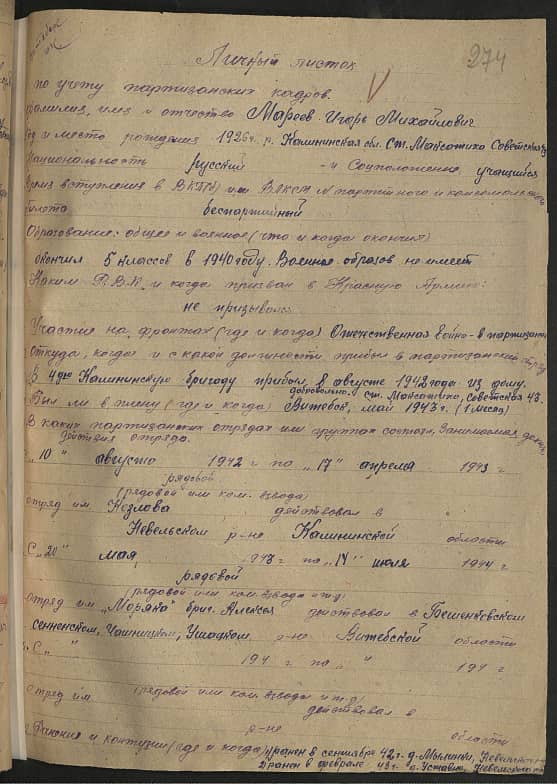 274
Личный листок
по учету партизанских кадров.
Фамилия, имя и отчество Мареев Игорь Михайлович
Год и место рождения 1926 г. р. Калининская обл. Ст. Советская
Национальность русский - и Соцположение учащийся
Время вступления в ВКП(б) или ВЛКСМ № партийного и комсомольского
билета беспартийный
Образование: общее и военное (что и когда окончил)
окончил 5 классов в 1940 году. Военное образов. не имеет
Каким Р.В.К. и когда призван в Красную Армию:
не призывался
Участие на фронтах (где и когда) Отечественная война - в партизанах
Откуда, когда и с какой должности прибыл в партизанский отряд
В 4ую Калининскую бригаду прибыл в августе 1942 года из дому.
добровольно, ст. Советская 43.
Был ли в плену (где и когда) Витебск, май 1943 г. (1 месяц)
В каких партизанских отрядах или группах состоял, занимаемая должн.
действия отряда.
С "10" августа 1942 г по "17" апреля 1943 г
рядовой
(рядовой или ком. взвода)
отряд им. Козлова действовал в
Невельском р-не Калининской области
С "20" мая 1943 г по "14" июля 1944 г
рядовой
(рядовой или ком. взвода и т.д.)
отряд им. "Моряка" бриг. Алексея действовал в Бешенковском
Сенненском, Чашницком, Ушацком, р-не Витебской области
С " " 194 г по " " 194 г
(рядовой или ком. взвода и т.д.)
отряд им. действовал в
р-не области
Ранения и контузии (где и когда) 1) ранен в сентябре 42 г. д.
2) ранен в феврале 43 г. д. Невельского